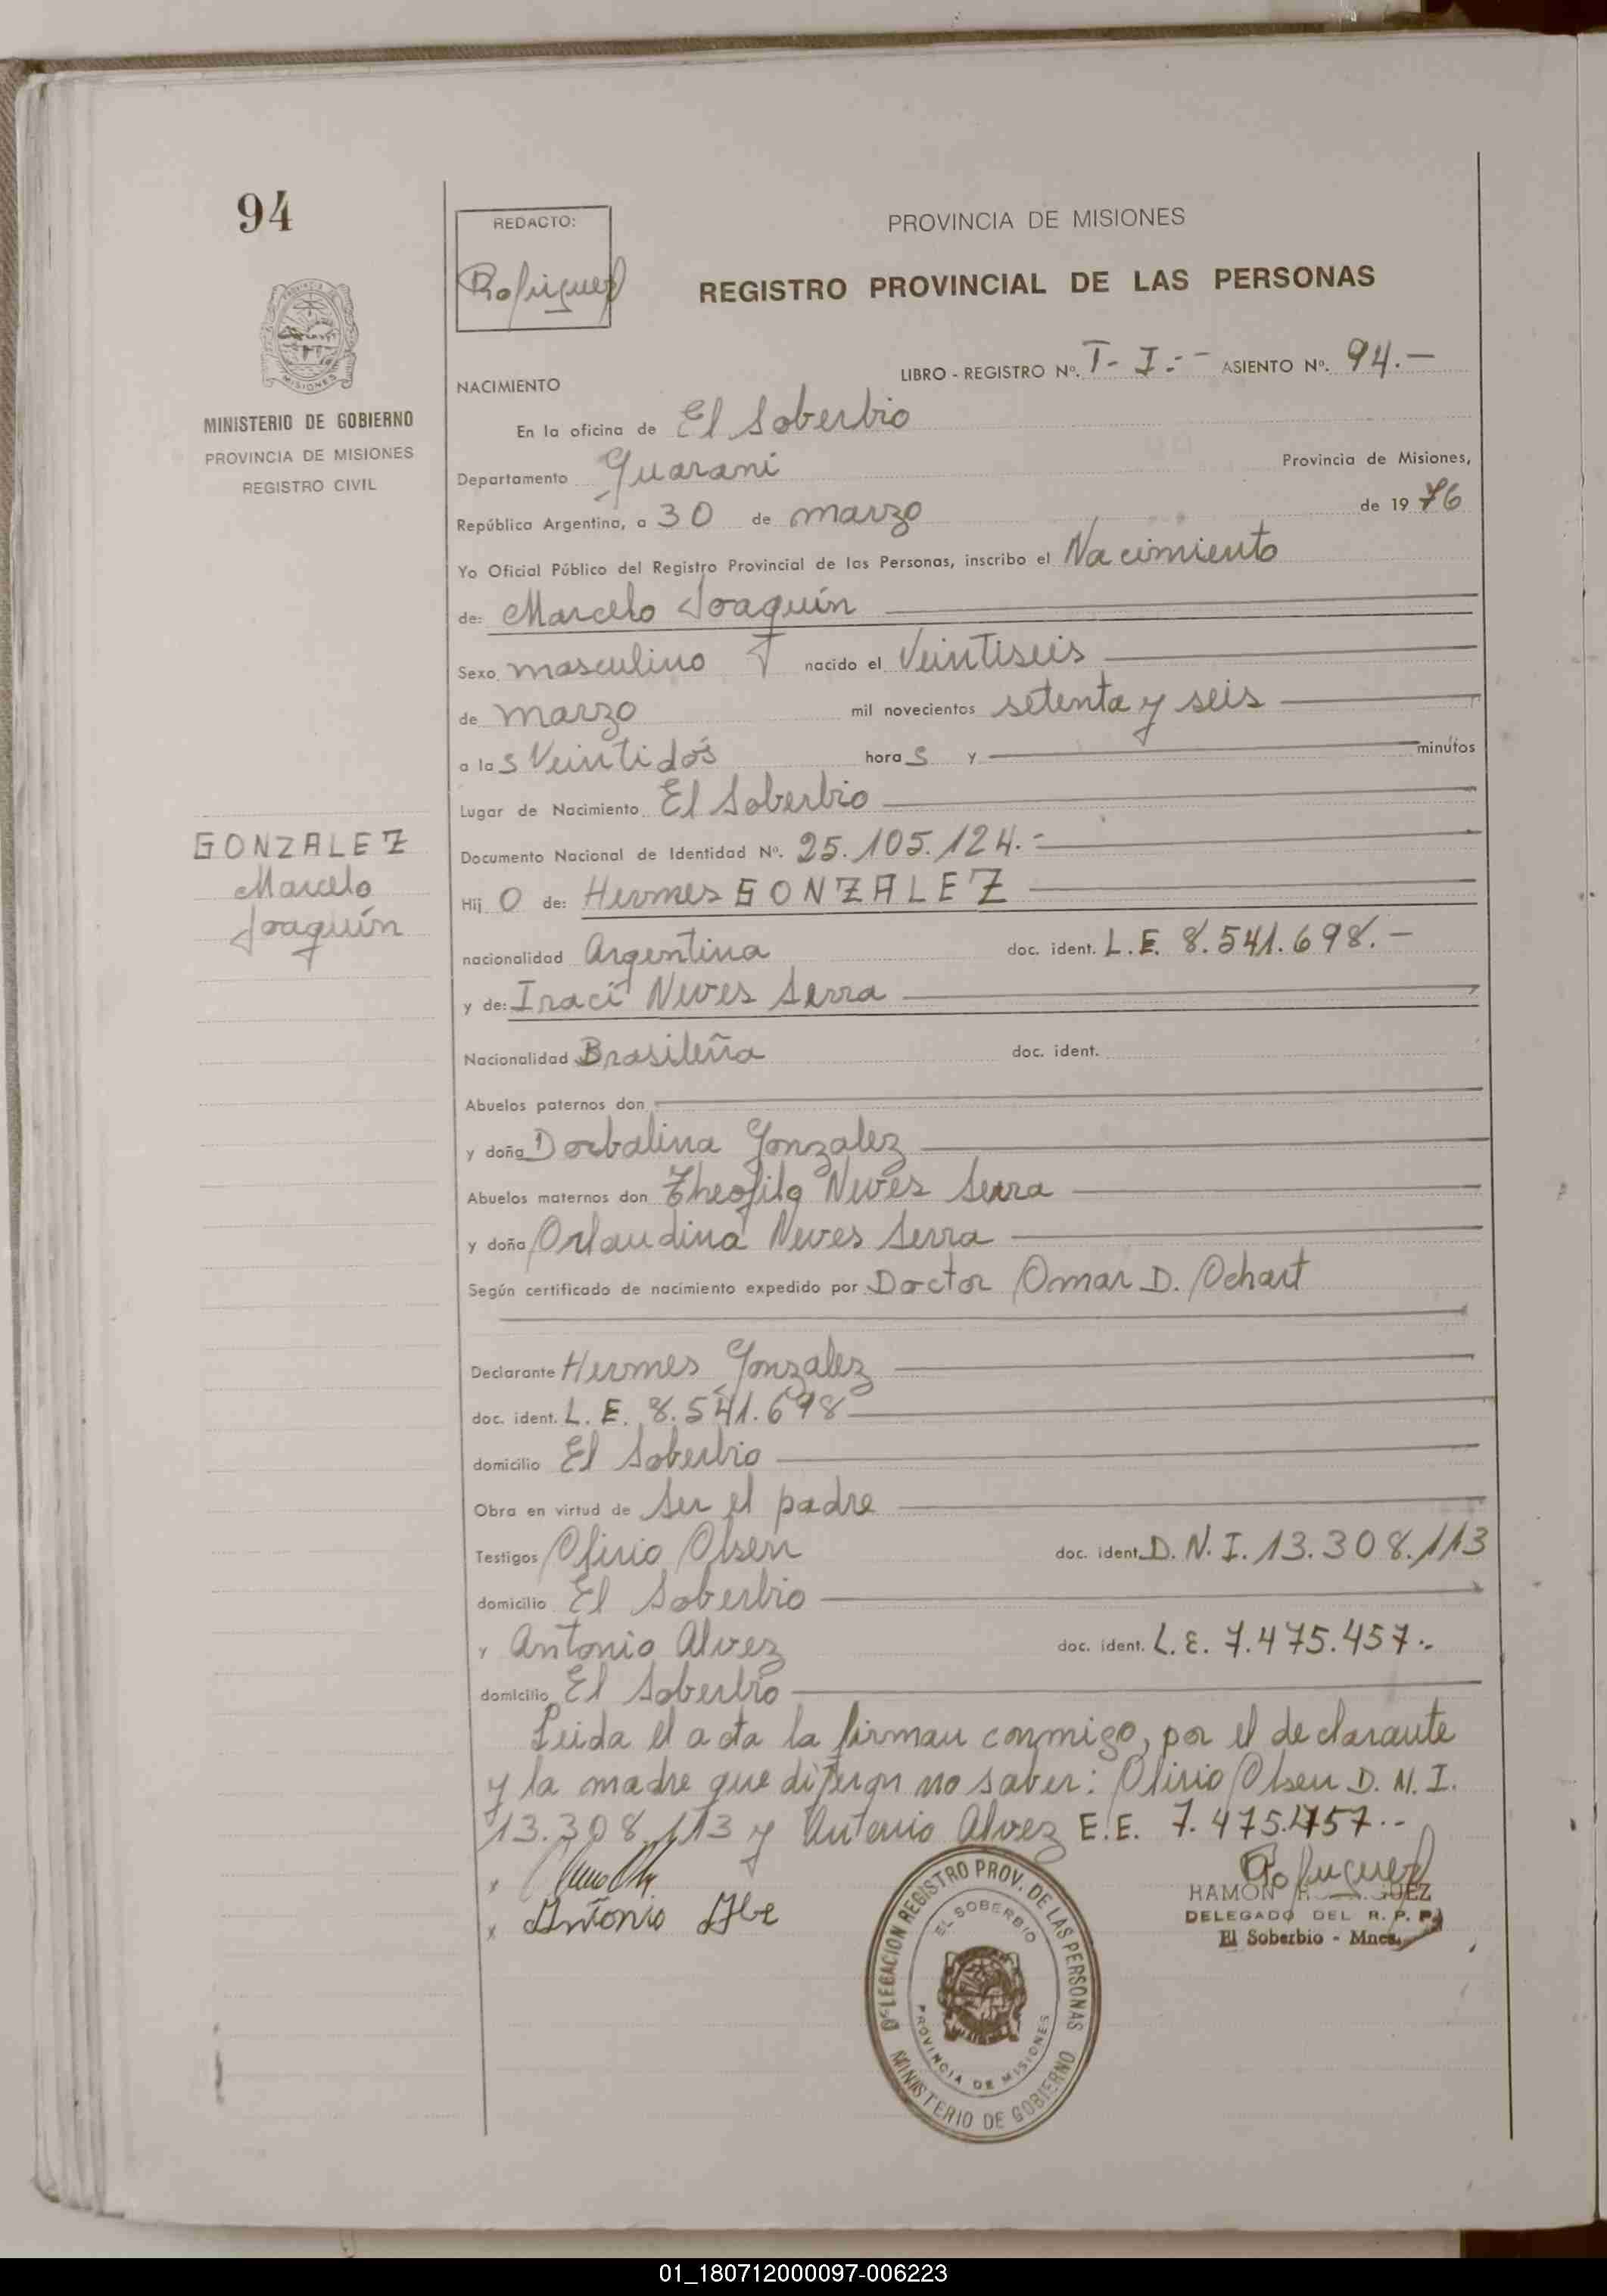 94
REDACTO:
Rodriguez
PROVINCIA DE MISIONES
REGISTRO PROVINCIAL DE LAS PERSONAS
MISIONES
MINISTERIO DE GOBIERNO
PROVINCIA DE MISIONES
REGISTRO CIVIL
LIBRO - REGISTRO Nº. T- I.- - ASIENTO Nº. 94.-
NACIMIENTO
En la oficina de El Soberbio
Departamento Guarani Provincia de Misiones,
República Argentina, a 30 de marzo de 1976
Yo Oficial Público del Registro Provincial de las Personas, inscribo el Nacimiento
de: Marcelo Joaquín
Sexo masculino nacido el Veintiseis
de marzo mil novecientos setenta y seis
a las Veintidós horas y minutos
Lugar de Nacimiento El Soberbio
Documento Nacional de Identidad Nº. 25.105.124.-
GONZALEZ
Marcelo
Joaquín
Hijo de: Hermes GONZALEZ
nacionalidad Argentina doc. ident. L.E. 8.541.698.-
y de: Iraci Neves Serra
Nacionalidad Brasileña doc. ident.
Abuelos paternos don
y doña Dorbalina Gonzalez
Abuelos maternos don Theofilo Neves Serra
y doña Orlandina Neves Serra
Según certificado de nacimiento expedido por Doctor Omar D. Ochart
Declarante Hermes Gonzalez
doc. ident. L. E. 8.541.698
domicilio El Soberbio
Obra en virtud de ser el padre
Testigos Olirio Olsen doc. ident. D.N.I. 13.308.113
domicilio El Soberbio
y Antonio Alvez doc. ident. L.E. 7.475.457.-
domicilio El Soberbio
Leida el acta la firman conmigo, por el declarante
y la madre que dijeron no saber: Olirio Olsen D.N.I.
13.308.113 y Antonio Alvez E.E. 7.475.457.--
x
x Antonio
Rodriguez
RAMON GUEZ
DELEGADO DEL R. P. P.
El Soberbio - Mnes.
DELEGACION REGISTRO PROV. DE LAS PERSONAS
EL SOBERBIO
PROVINCIA DE MISIONES
MINISTERIO DE GOBIERNO
01_180712000097-006223